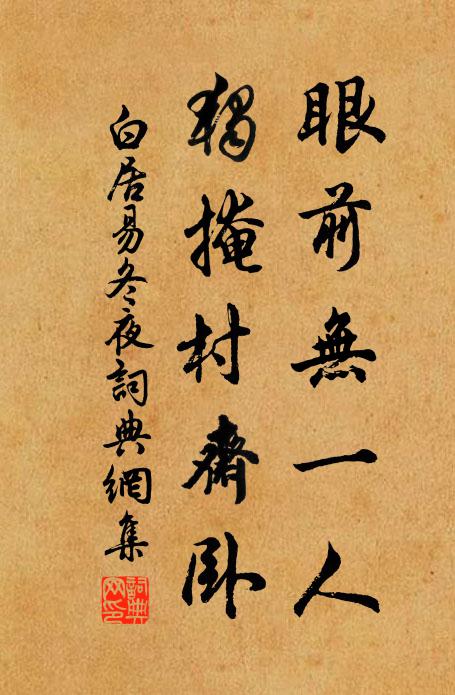 眼前無一人
獨掩村齋臥
白居易冬夜詞典網集
詞典網印